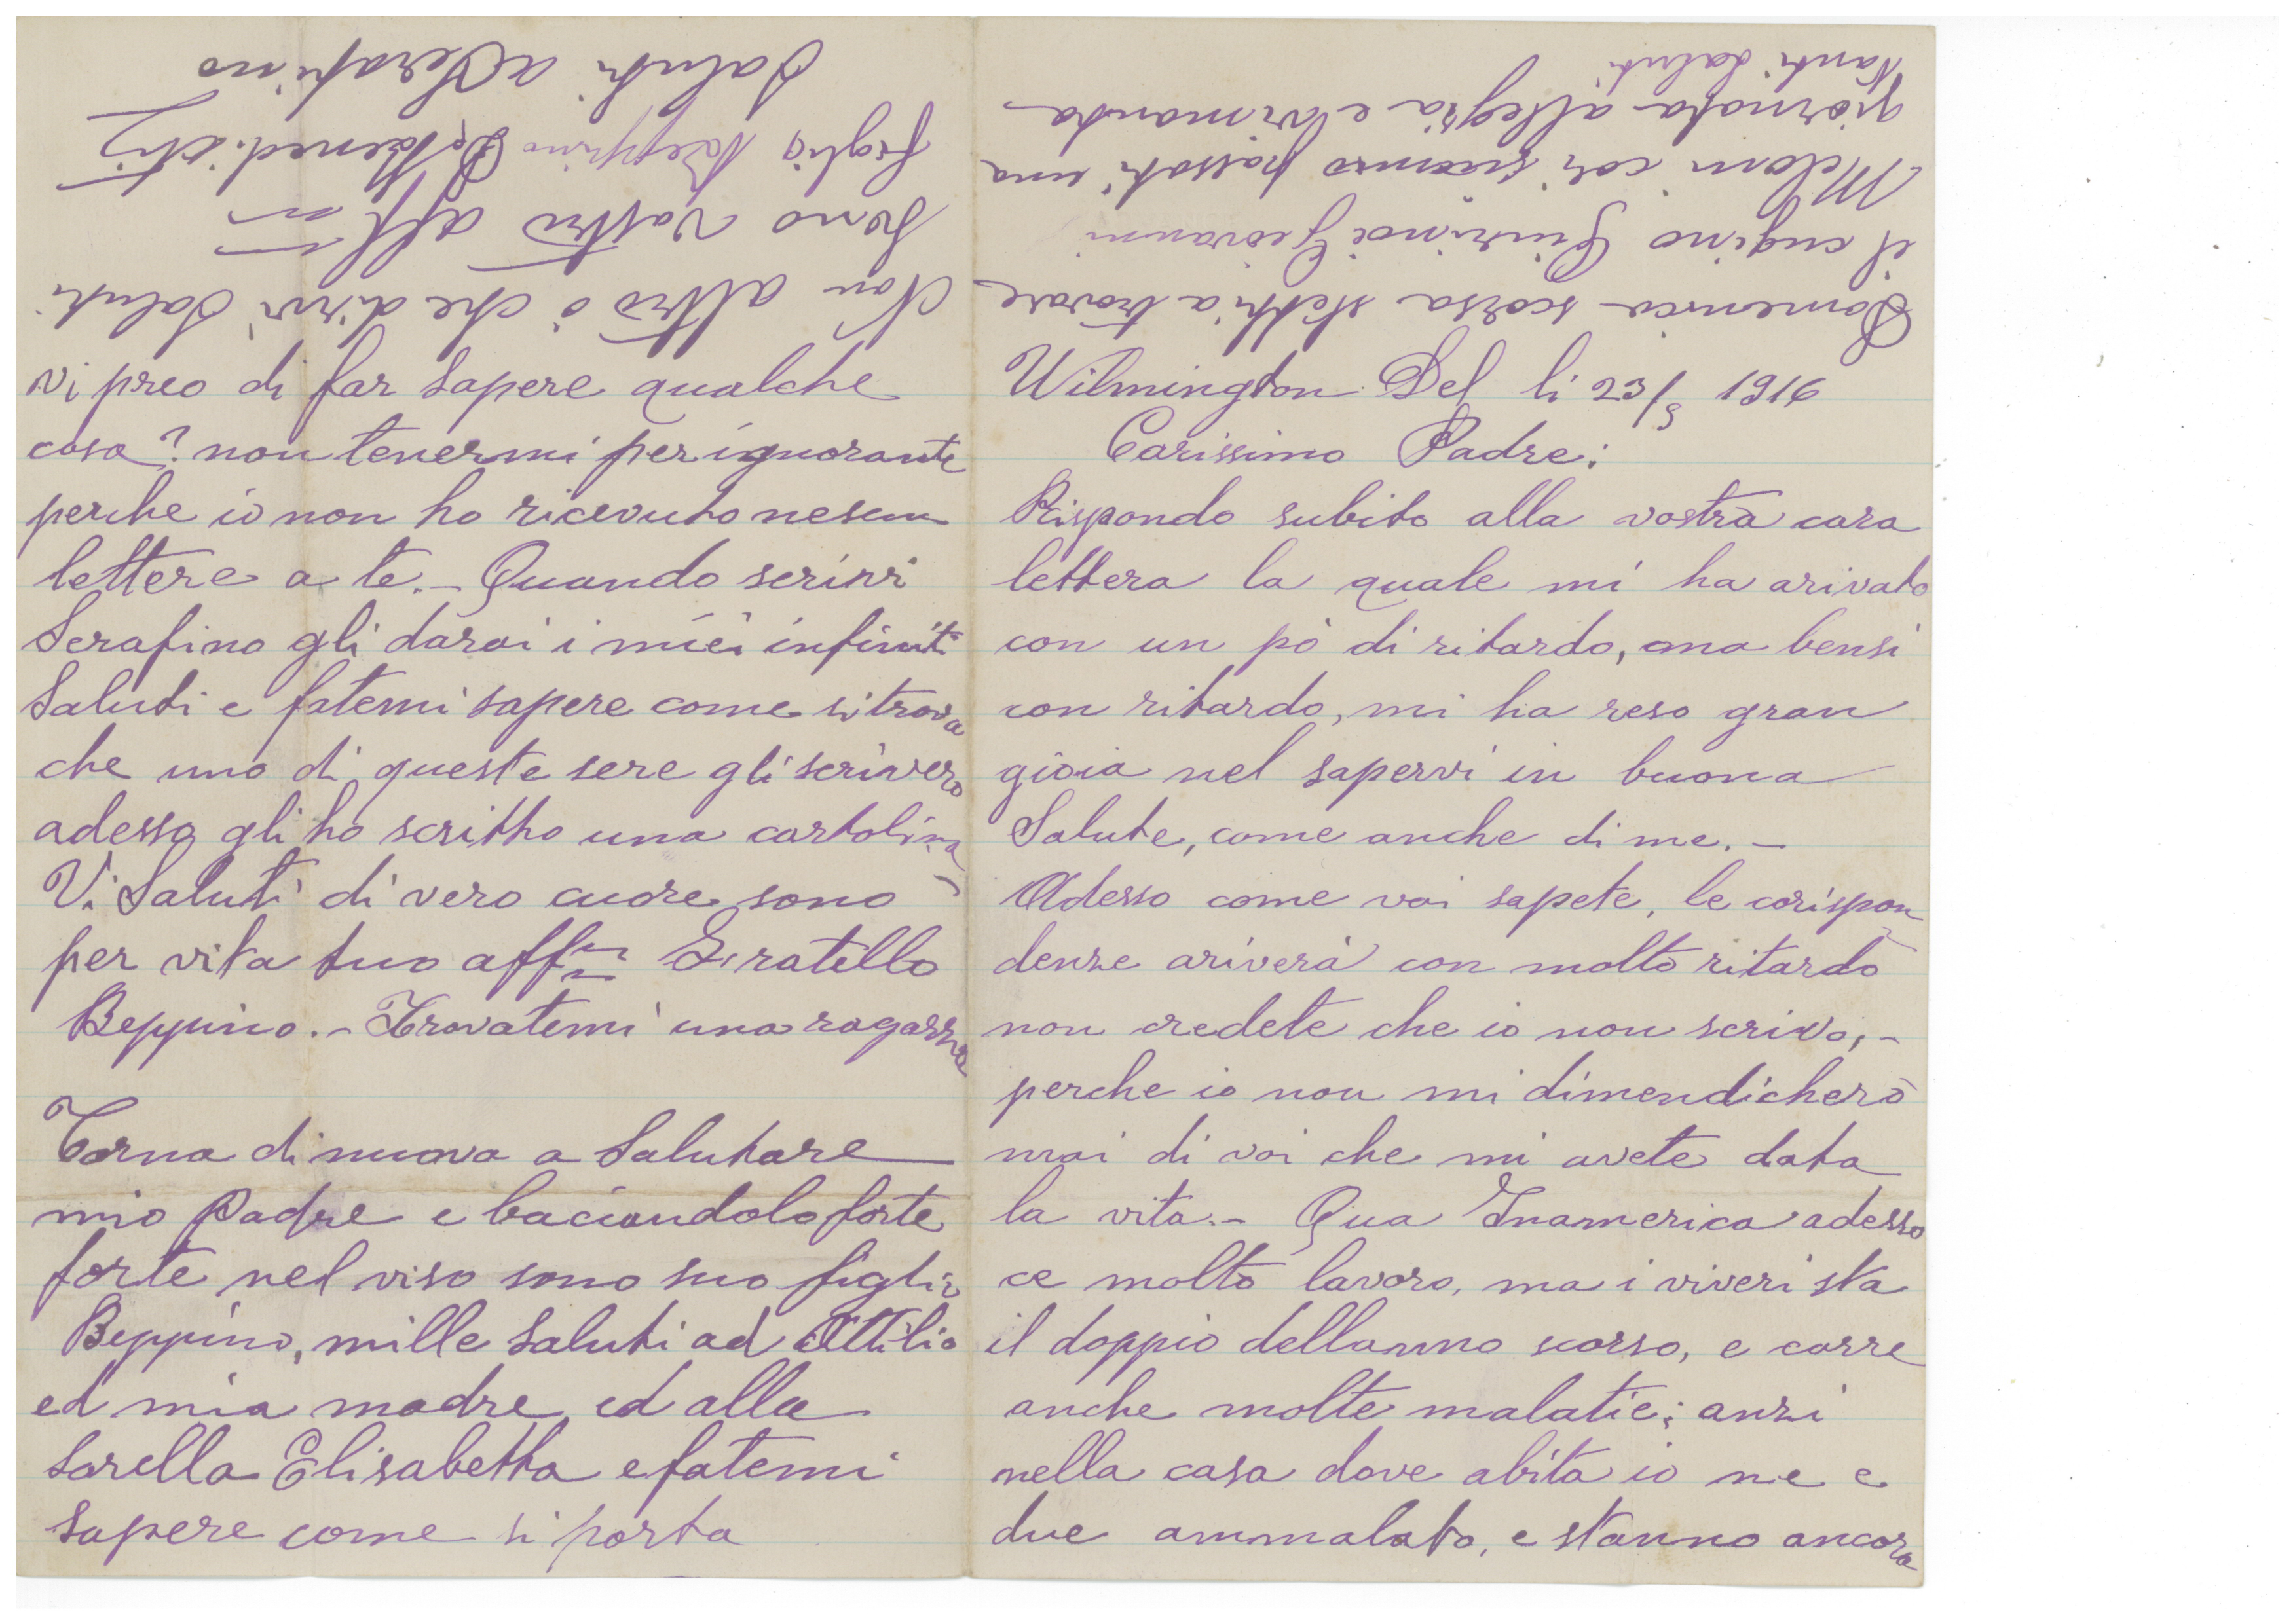 Wilmington Del li 23/3 1916
Carissimo Padre:
Rispondo subito alla vostra cara
lettera la quale mi ha arivato
con un pò di ritardo, ma bensi
con ritardo, mi ha reso gran
gioia nel sapervi in buona
Salute, come anche di me. –
Adesso come voi sapete, le corispon
denze ariverà con molto ritardo
non credete che io non scrivo, –
perche io non mi dimendicherò
mai di voi che mi avete data
la vita. – Qua Inamerica adesso
ce molto lavoro, ma i viveri sta
il doppio dellanno scorso, e corre
anche molte malatie; anzi
nella casa dove abita io ne e
due ammalato, e stanno ancora
vi preo di far sapere qualche
cosa? non tenermi per ignorante
perche io non ho ricevuto nesun
lettere a te. – Quando scrivi
Serafino gli darai i miei infiniti
Saluti e fatemi sapere come si trova
che uno di queste sere gli scrivero
adesso gli ho scritto una cartolina –
Vi Saluti di vero cuore sono
per vita tuo aff Fratello
Beppino. – Trovatemi una ragazza
Torna di nuovo a Salutare
mio Padre e baciandolo forte
forte nel viso sono suo figlio
Beppino, mille Saluti ad Attilio
ed mia madre ed alla
Sorella Elisabetta e fatemi
Sapere come si porta
Domenica scorsa stetti a trovare
il cugino Quirino e Giovanni
Melani cosi passati una
giornata allegria e vi manda
tanti Saluti
Non altro ò che dirvi Saluti
Sono vostro aff
figlio Beppino De Benedictis
Saluti a Serafino